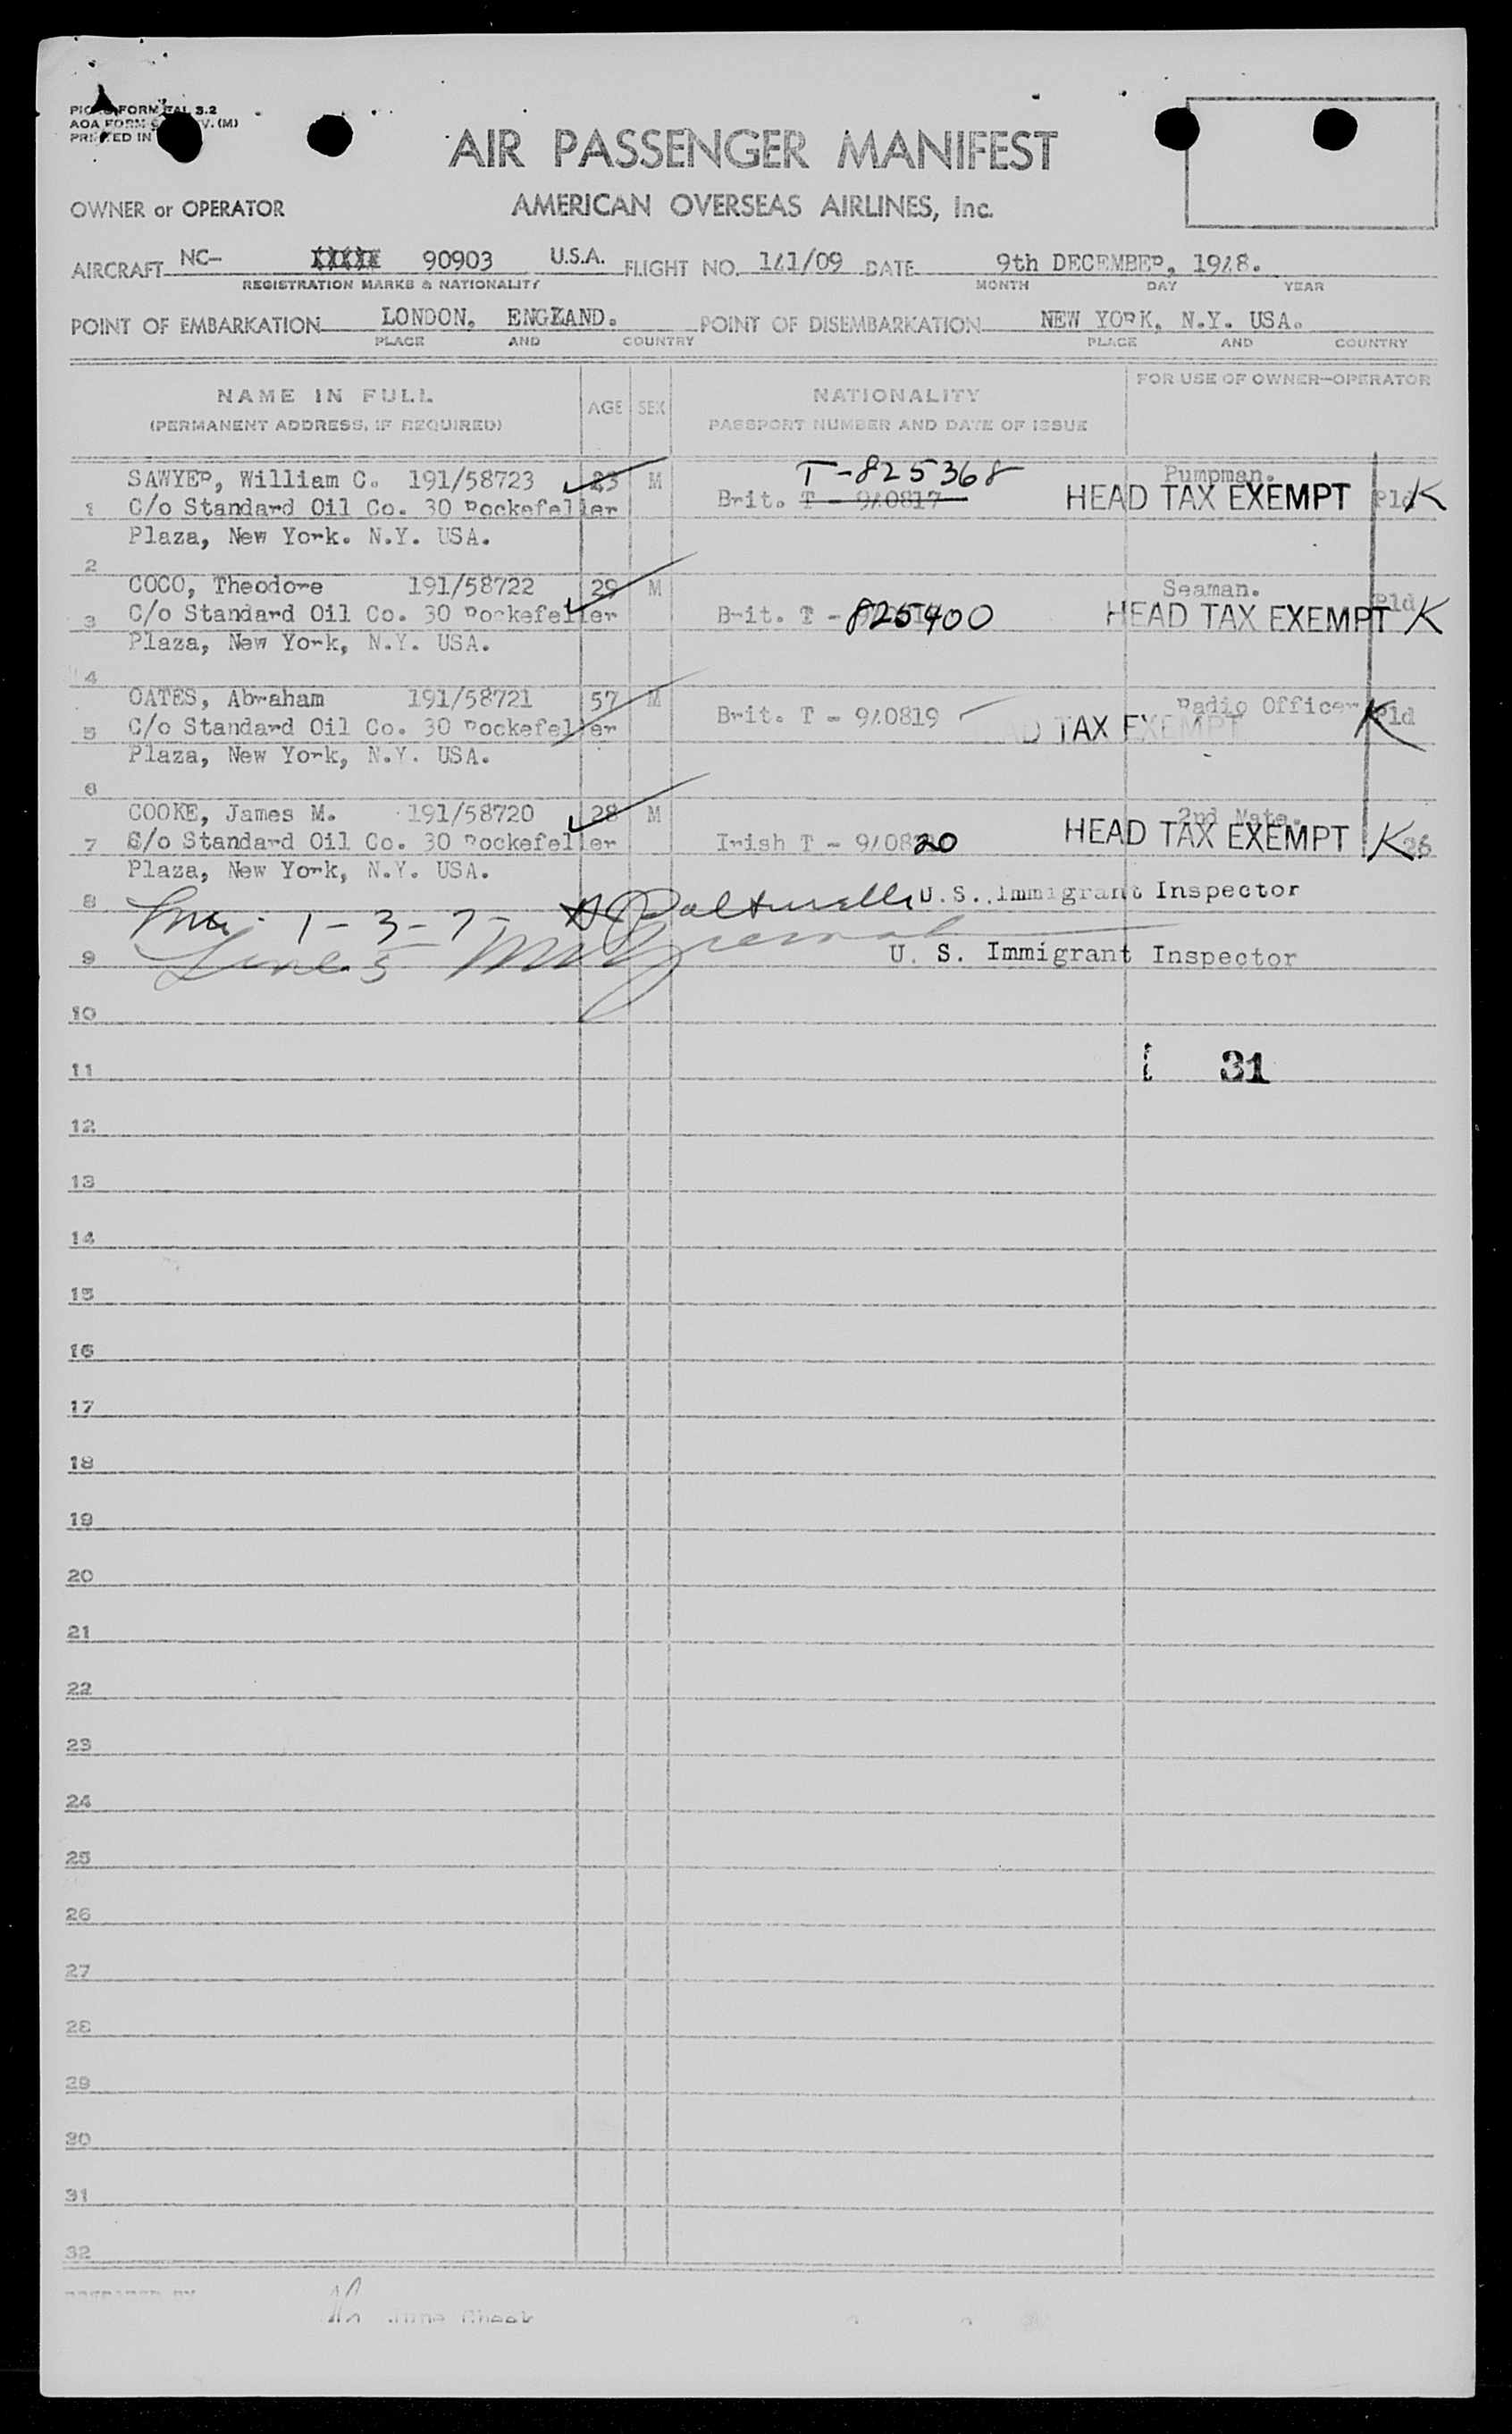 AIR PASSENGER MANIFEST
OWNER or OPERATOR AMERICAN OVERSEAS AIRLINES, Inc.
AIRCRAFT NC- 90903 U.S.A. FLIGHT NO. 141/09 DATE 9th DECEMBER, 1948.
REGISTRATION MARKS & NATIONALITY MONTH DAY YEAR
POINT OF EMBARKATION LONDON, ENGLAND. POINT OF DISEMBARKATION NEW YORK, N.Y. USA.
PLACE AND COUNTRY PLACE AND COUNTRY
NAME IN FULL AGE SEX NATIONALITY FOR USE OF OWNER-OPERATOR
(PERMANENT ADDRESS, IF REQUIRED) PASSPORT NUMBER AND DATE OF ISSUE
SAWYER, William C. 191/58723 23 M T-825368 Pumpman.
1 C/o Standard Oil Co. 30 Rockefeller Brit. T - 940817 HEAD TAX EXEMPT Pld K
Plaza, New York. N.Y. USA.
2
COCO, Theodore 191/58722 29 M Seaman.
3 C/o Standard Oil Co. 30 Rockefeller Brit. T - 825400 HEAD TAX EXEMPT Pld K
Plaza, New York, N.Y. USA.
4
OATES, Abraham 191/58721 57 M Radio Officer
5 C/o Standard Oil Co. 30 Rockefeller Brit. T - 940819 AD TAX EXEMPT K Pld
Plaza, New York, N.Y. USA.
6
COOKE, James M. 191/58720 28 M 2nd Mate.
7 C/o Standard Oil Co. 30 Rockefeller Irish T - 940820 HEAD TAX EXEMPT K 26
Plaza, New York, N.Y. USA.
8 1-3-7- U.S. Immigrant Inspector
9 Line 5 U. S. Immigrant Inspector
10
11 31
12
13
14
15
16
17
18
19
20
21
22
23
24
25
26
27
28
29
30
31
32
PREPARED BY June Cheek